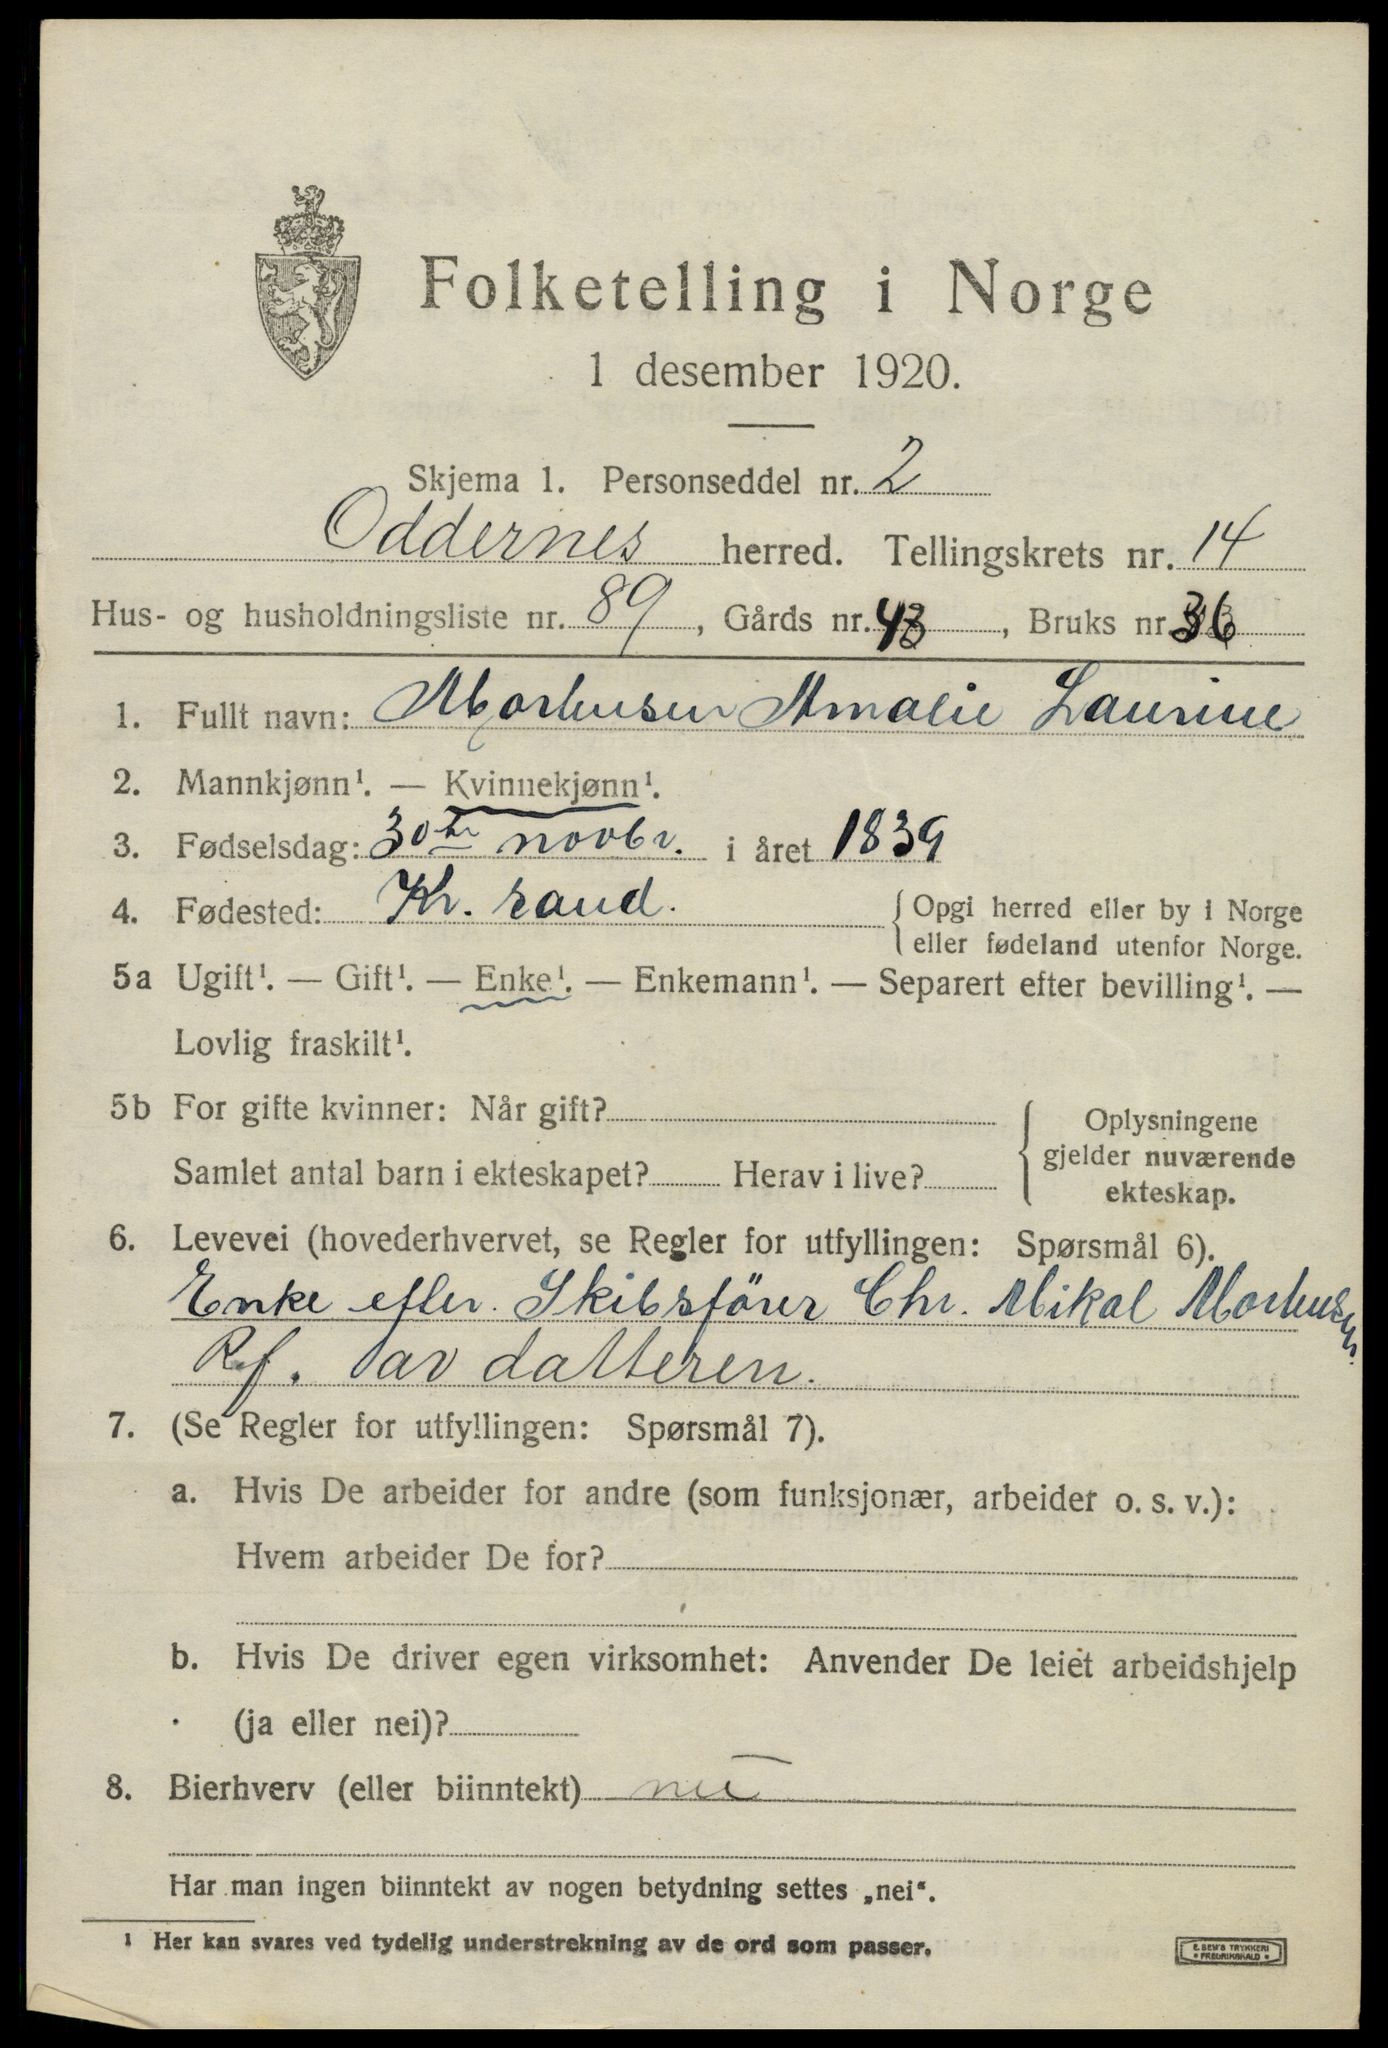 Folketelling i Norge
1 desember 1920.
Skjema 1. Personseddel nr. 2
Oddernes herred. Tellingskrets nr. 14
Hus- og husholdningsliste nr. 89, Gårds nr. 43, Bruks nr. 36
1. Fullt navn: Morhusen Amalie Laurine
2. Mannkjønn¹. — Kvinnekjønn¹.
3. Fødselsdag: 30te novbr. i året 1839
4. Fødested: Kr. sand. Opgi herred eller by i Norge
eller fødeland utenfor Norge.
5a Ugift¹. — Gift¹. — Enke¹. — Enkemann¹. — Separert efter bevilling¹. —
Lovlig fraskilt¹.
5b For gifte kvinner: Når gift? Oplysningene
gjelder nuværende
Samlet antal barn i ekteskapet? Herav i live?
ekteskap.
6. Levevei (hovederhvervet, se Regler for utfyllingen: Spørsmål 6).
Enke efter. Skibsförer Chr. Mikal Morhusen.
Rf. av datteren.
7. (Se Regler for utfyllingen: Spørsmål 7).
a. Hvis De arbeider for andre (som funksjonær, arbeider o. s. v.):
Hvem arbeider De for?
b. Hvis De driver egen virksomhet: Anvender De leiet arbeidshjelp
(ja eller nei)?
8. Bierhverv (eller biinntekt) nei
Har man ingen biinntekt av nogen betydning settes „nei“.
¹ Her kan svares ved tydelig understrekning av de ord som passer.
E. SEM'S TRYKKERI
• FREDRIKSHALD •